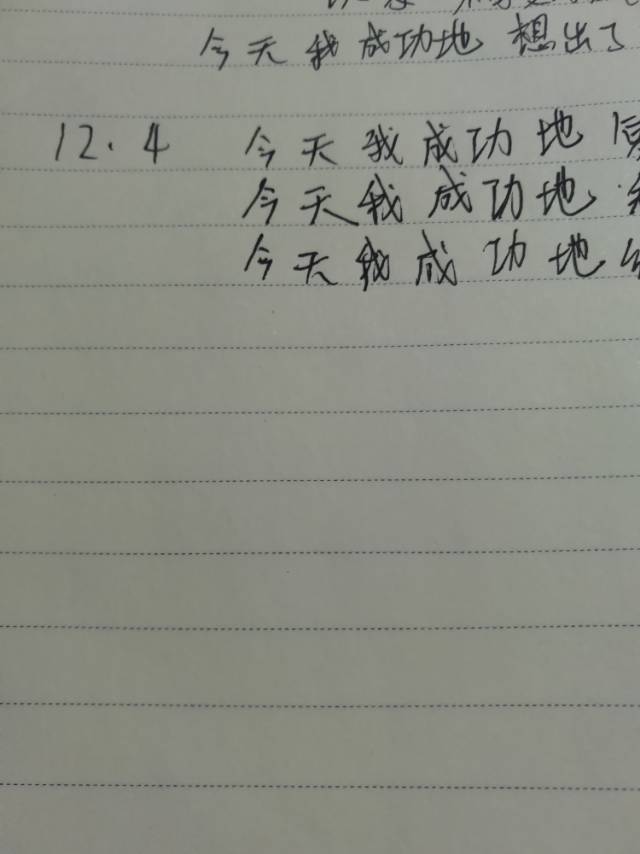 今天我成功地想出了
12.4 今天我成功地
今天我成功地
今天我成功地